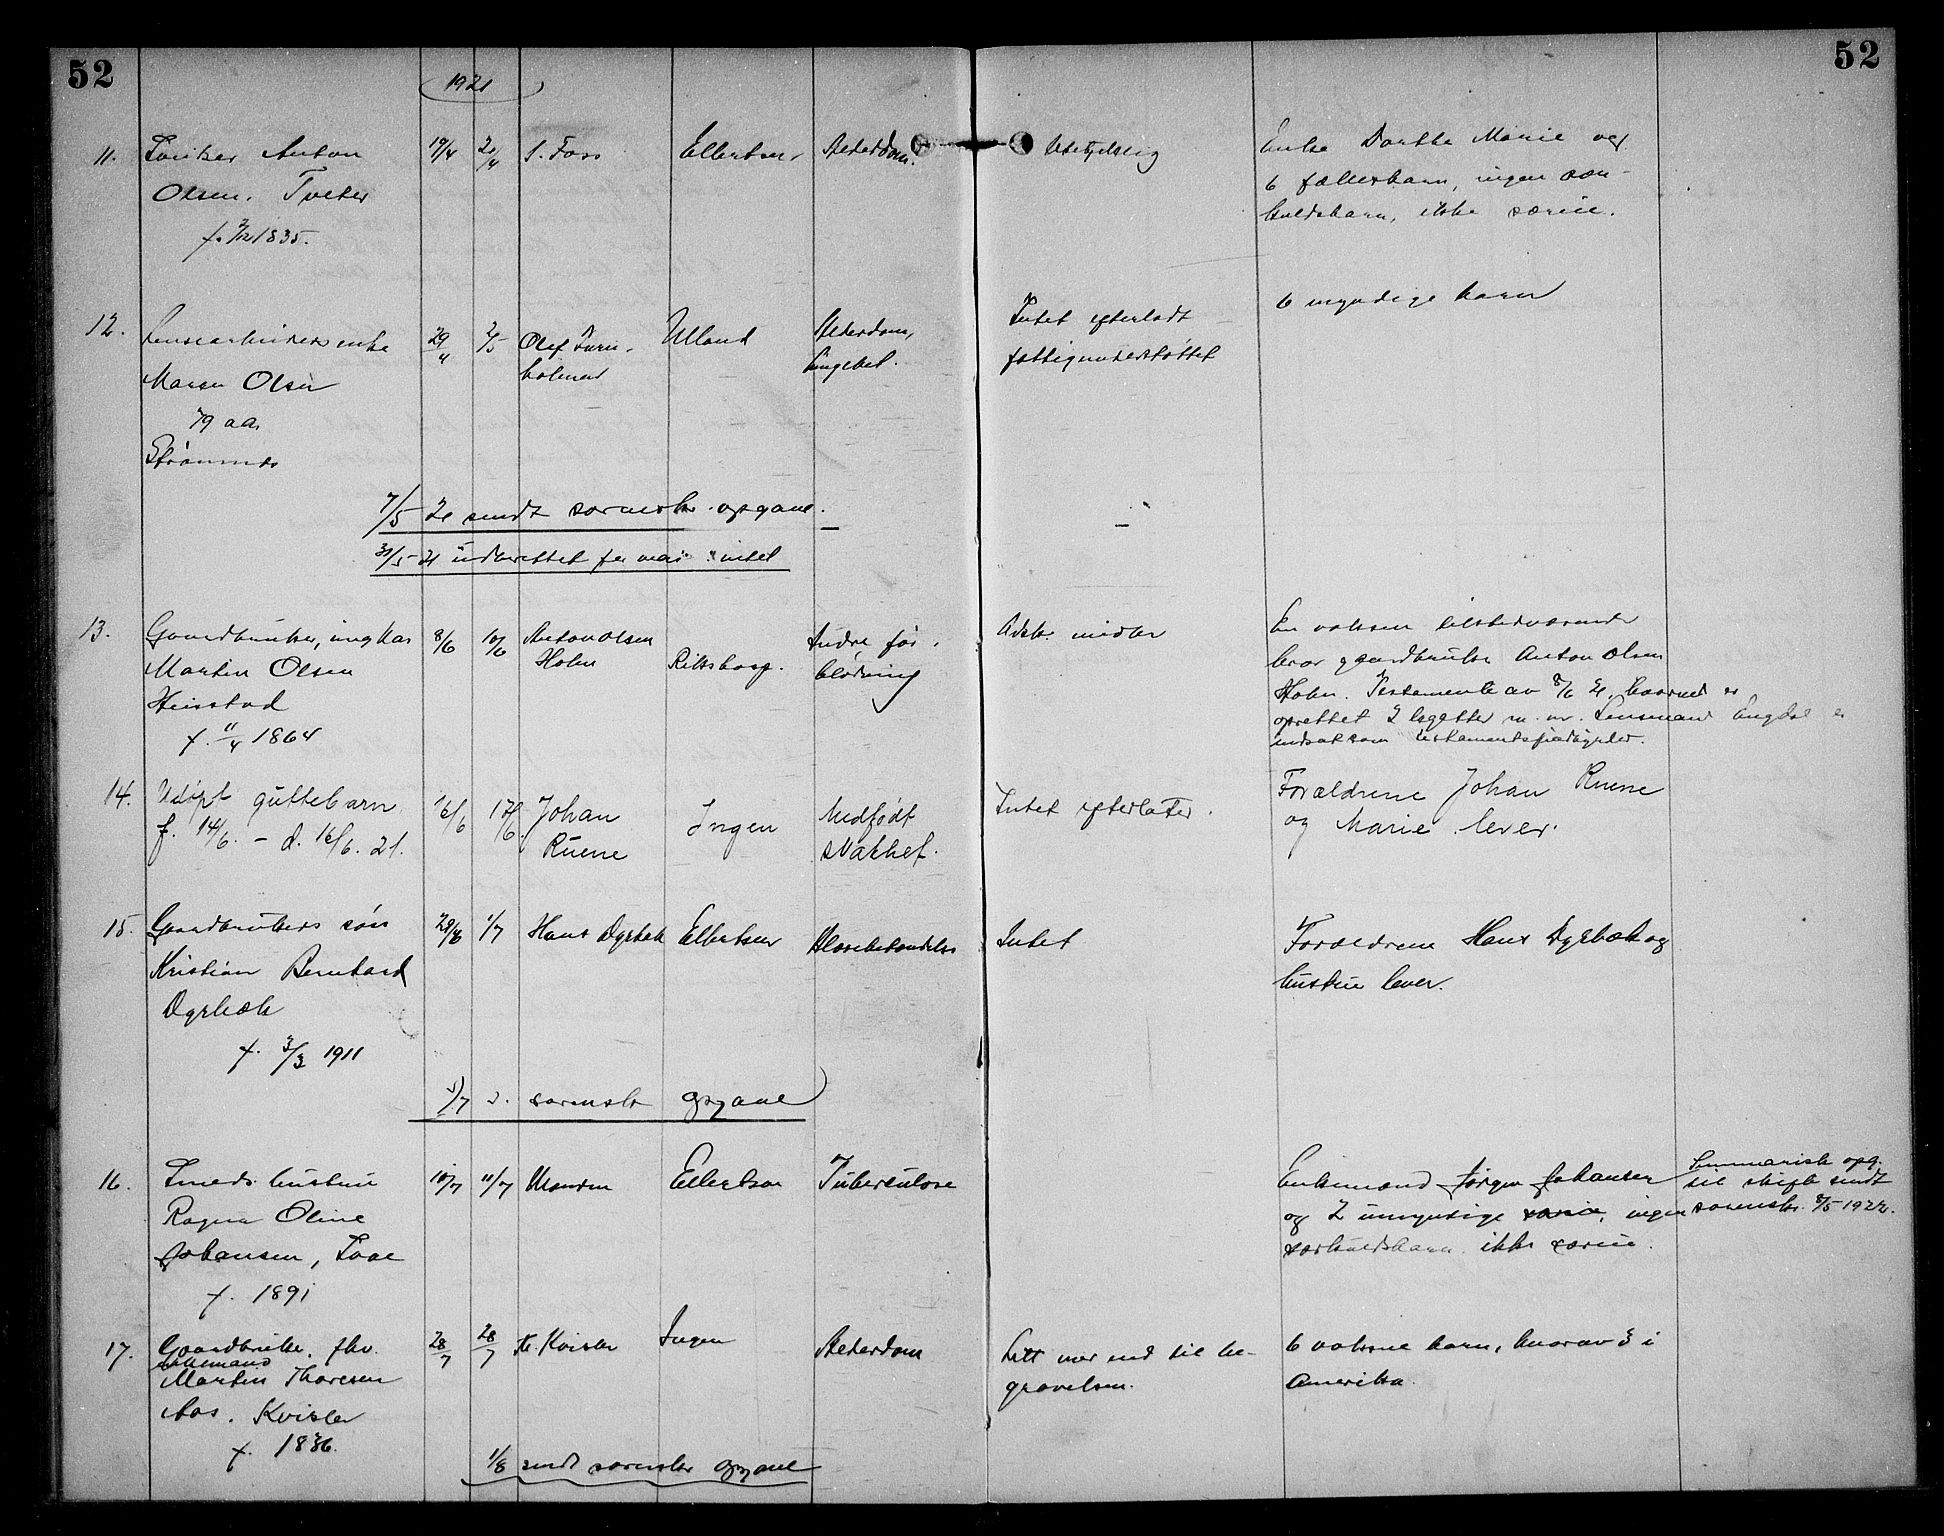 52
52
1921
11. Anton
Olsen. Tveter
f. 1835.
19/4
2/4
S. Foss
Ellertsen
Alderdom.
Ubetydelig
Enke Dorthe Marie og
6 fællesbarn, ingen sær-
kuldsbarn, ikke særeie.
12. enke
Maren Olsen
79 aar
Strømnes
29/4
2/5
Olaf
holmen
Ulland
Alderdom,
Intet efterladt
fattigunderstøttet
6 myndige barn
7/5 21 sendt sorenskr. opgave.
31/5 21 indberettet for mai: intet
13. Gaardbruker, ungkar
Martin Olsen
Heistad
f. 11/4 1864
8/6
10/6
Anton Olsen
Holm
Rikshosp.
Indre for-
blødning
Adsk. midler
En voksen tilstedeværende
bror gaardbruker Anton Olsen
Holm. Testamente av 8/6 21, hvorved er
oprettet 2 legatter m. m. Lensmand Engdal er
indsat som testamentsfuldbyrder.
14. Udøpt guttebarn
f. 14/6. – d. 16/6. 21.
16/6
17/6.
Johan
Ruene
Ingen
Medfødt
svakhet.
Intet efterlater.
Forældrene Johan Ruene
og Marie lever.
15. Gaardbrukers søn
Kristian Bernhard
Dyrbæk
f. 3/3 1911
29/6
1/7
Hans Dyrbæk
Ellertsen
Intet
Forældrene Hans Dyrbæk og
hustru lever.
1/7 s. sorenskr opgave
16. Smeds hustru
Ragna Oline
Johansen,
f. 1891
10/7
11/7
Manden
Ellertsen
Tuberculose
Enkemand Jørgen Johansen
og 2 umyndige, ingen
særkuldsbarn. ikke særeie.
Summarisk opg.
til skifte sendt
sorenskr. 8/5 1922.
17. Gaardbruker, fhv.
Martin Thoresen
Aas. Kvisler
f. 1836.
28/7
28/7
Kr. Kvisler
Ingen
Alderdom
Litt mer end til be-
gravelsen.
6 voksne barn, hvorav 3 i
Amerika.
1/8 sendt sorenskr opgave